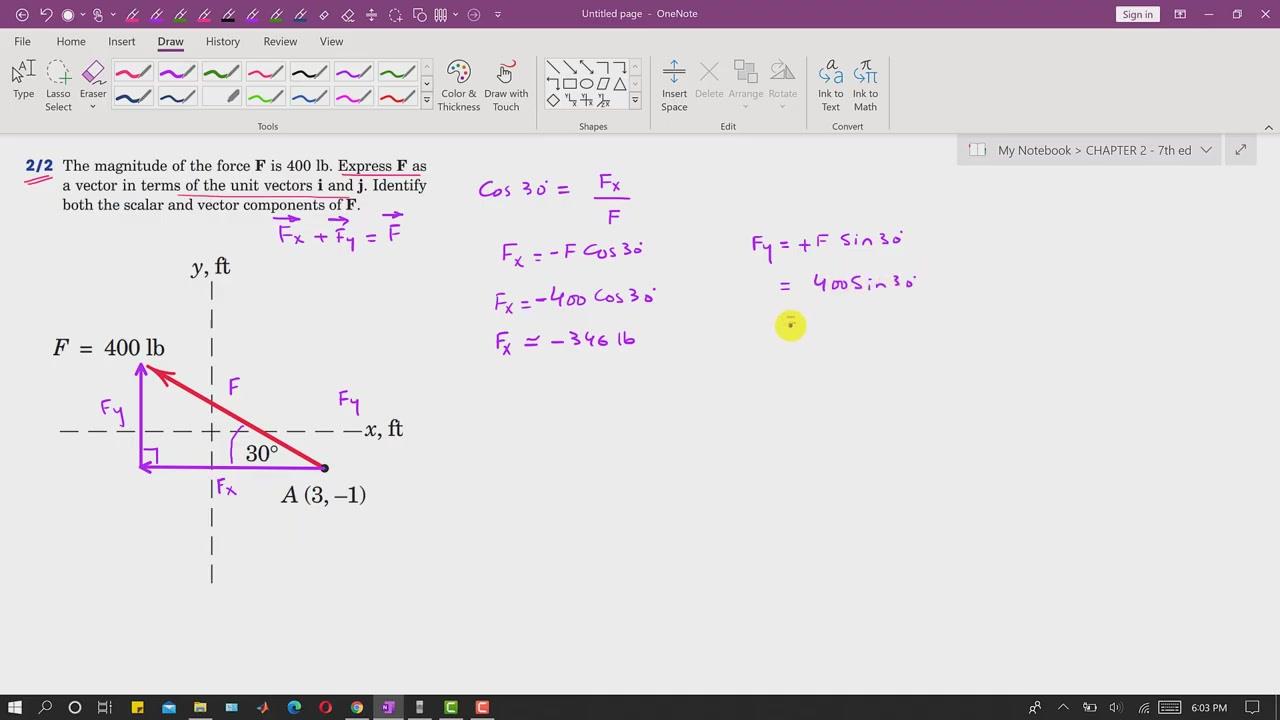 Untitled page - OneNote
Sign in
File Home Insert Draw History Review View
Type
Lasso Select
Eraser
Color & Thickness
Draw with Touch
Insert Space
Delete
Arrange
Rotate
Ink to Text
Ink to Math
Tools
Shapes
Edit
Convert
My Notebook > CHAPTER 2 - 7th ed
2/2 The magnitude of the force F is 400 lb. Express F as
a vector in terms of the unit vectors i and j. Identify
both the scalar and vector components of F.
Fx + Fy = F
y, ft
F = 400 lb
F
Fy
Fy
x, ft
30°
Fx
A (3, –1)
Cos 30° = Fx / F
Fx = -F Cos 30°
Fx = -400 Cos 30°
Fx ≃ -346 lb
Fy = +F Sin 30°
= 400 Sin 30°
=
6:03 PM